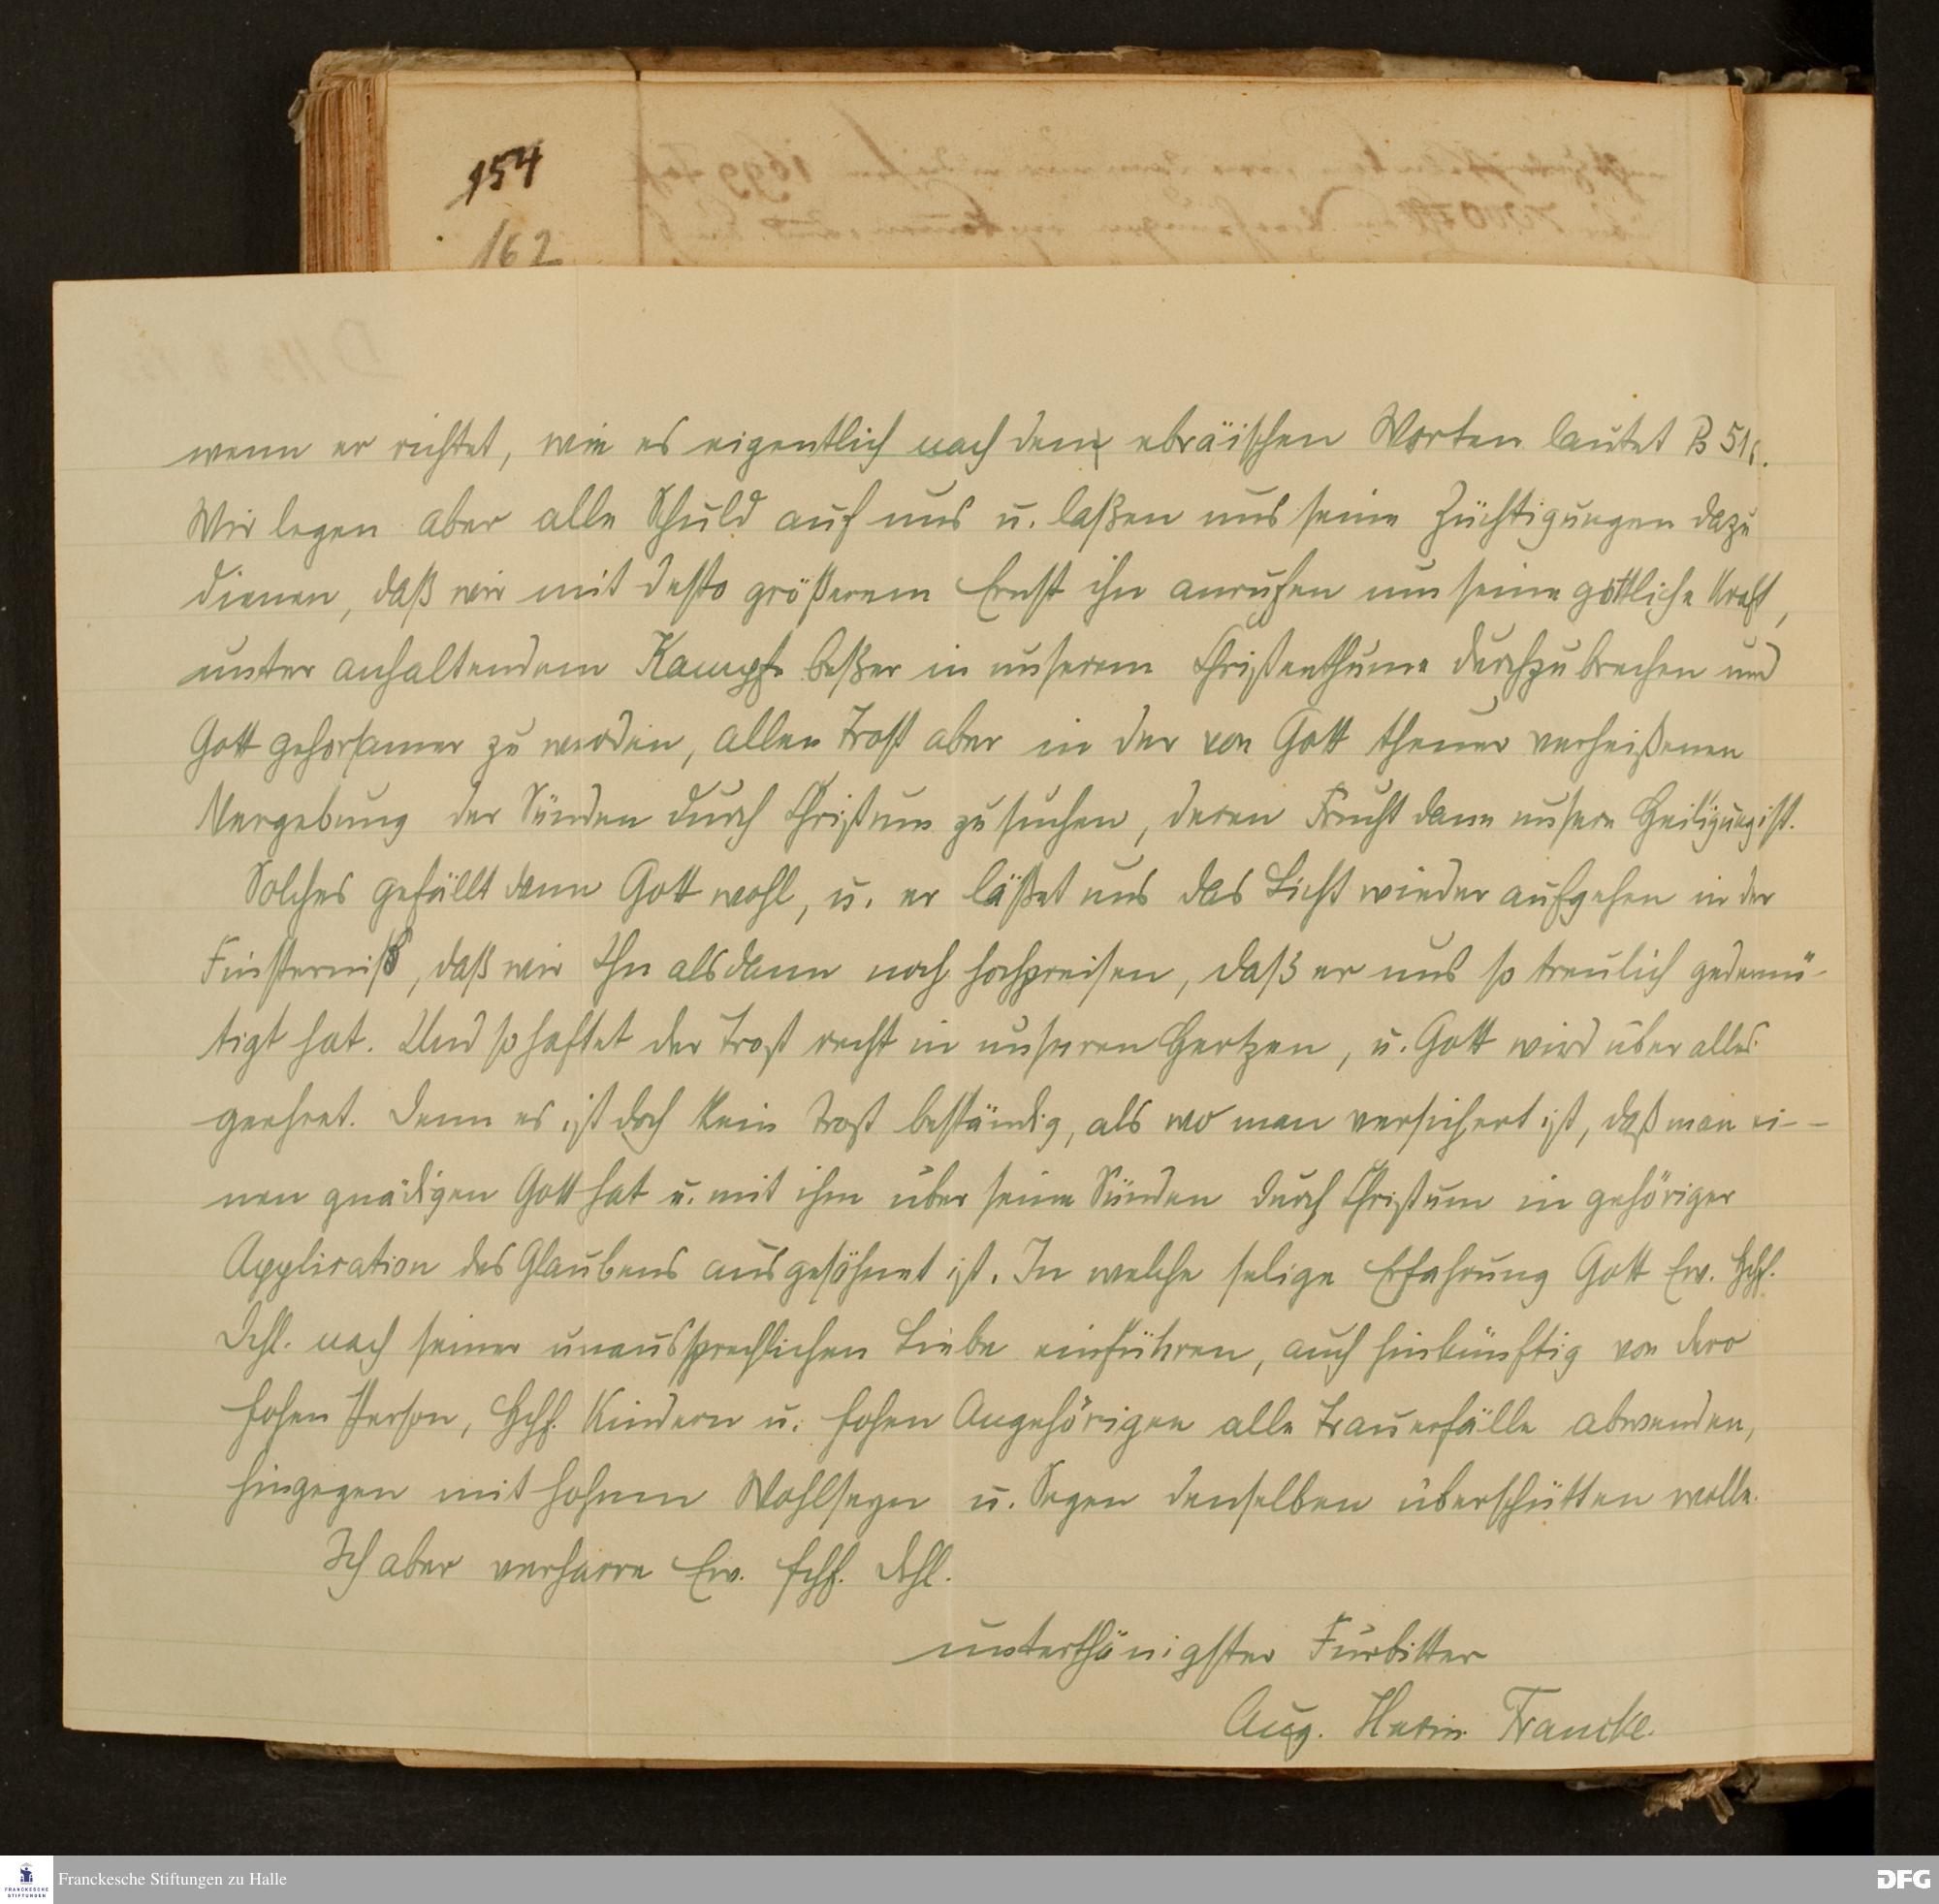 154
162
wenn er richtet, wie es eigentlich nach den ebräischen Worten lautet Ps 51,6.
Wir legen aber alle Schuld auf uns u. laßen uns seine Züchtigungen dazu
dienen, daß wir mit desto größerem Ernst ihn anrufen um seine göttliche Kraft,
unter anhaltendem Kampfe beßer in unserem Christenthume durchzubrechen und
Gott gehorsamer zu werden, allen Trost aber in der von Gott theuer verheißenen
Vergebung der Sünden durch Christum zu suchen, deren Frucht dann unsere Heiligung ist.
Solches gefällt dann Gott wohl, u. er läßet uns das Licht wieder aufgehen in der
Finsterniß, daß wir Ihn alsdann noch hochpreisen, daß er uns so treulich gedemü-
tigt hat. Und so haftet der Trost recht in unseren Hertzen, u. Gott wird über alles
geehret. Denn es ist doch kein Trost beständig, als wo man versichert ist, daß man ei-
nen gnädigen Gott hat u. mit ihm über seine Sünden durch Christum in gehöriger
Application des Glaubens ausgesöhnet ist. In welche selige Erfahrung Gott Ew. Hchf.
Dchl. nach seiner unaussprechlichen Liebe einführen, auch hinkünftig von dero
hohen Person, Hchf. Kindern u. hohen Angehörigen alle Trauerfälle abwenden,
hingegen mit hohem Wohlseyn u. Segen denselben überschütten wolle.
Ich aber verharre Ew. hchf. Dchl.
unterthänigster Fürbitter
Aug. Herm. Francke.
Franckesche Stiftungen zu Halle
FRANCKESCHE STIFTUNGEN
DFG